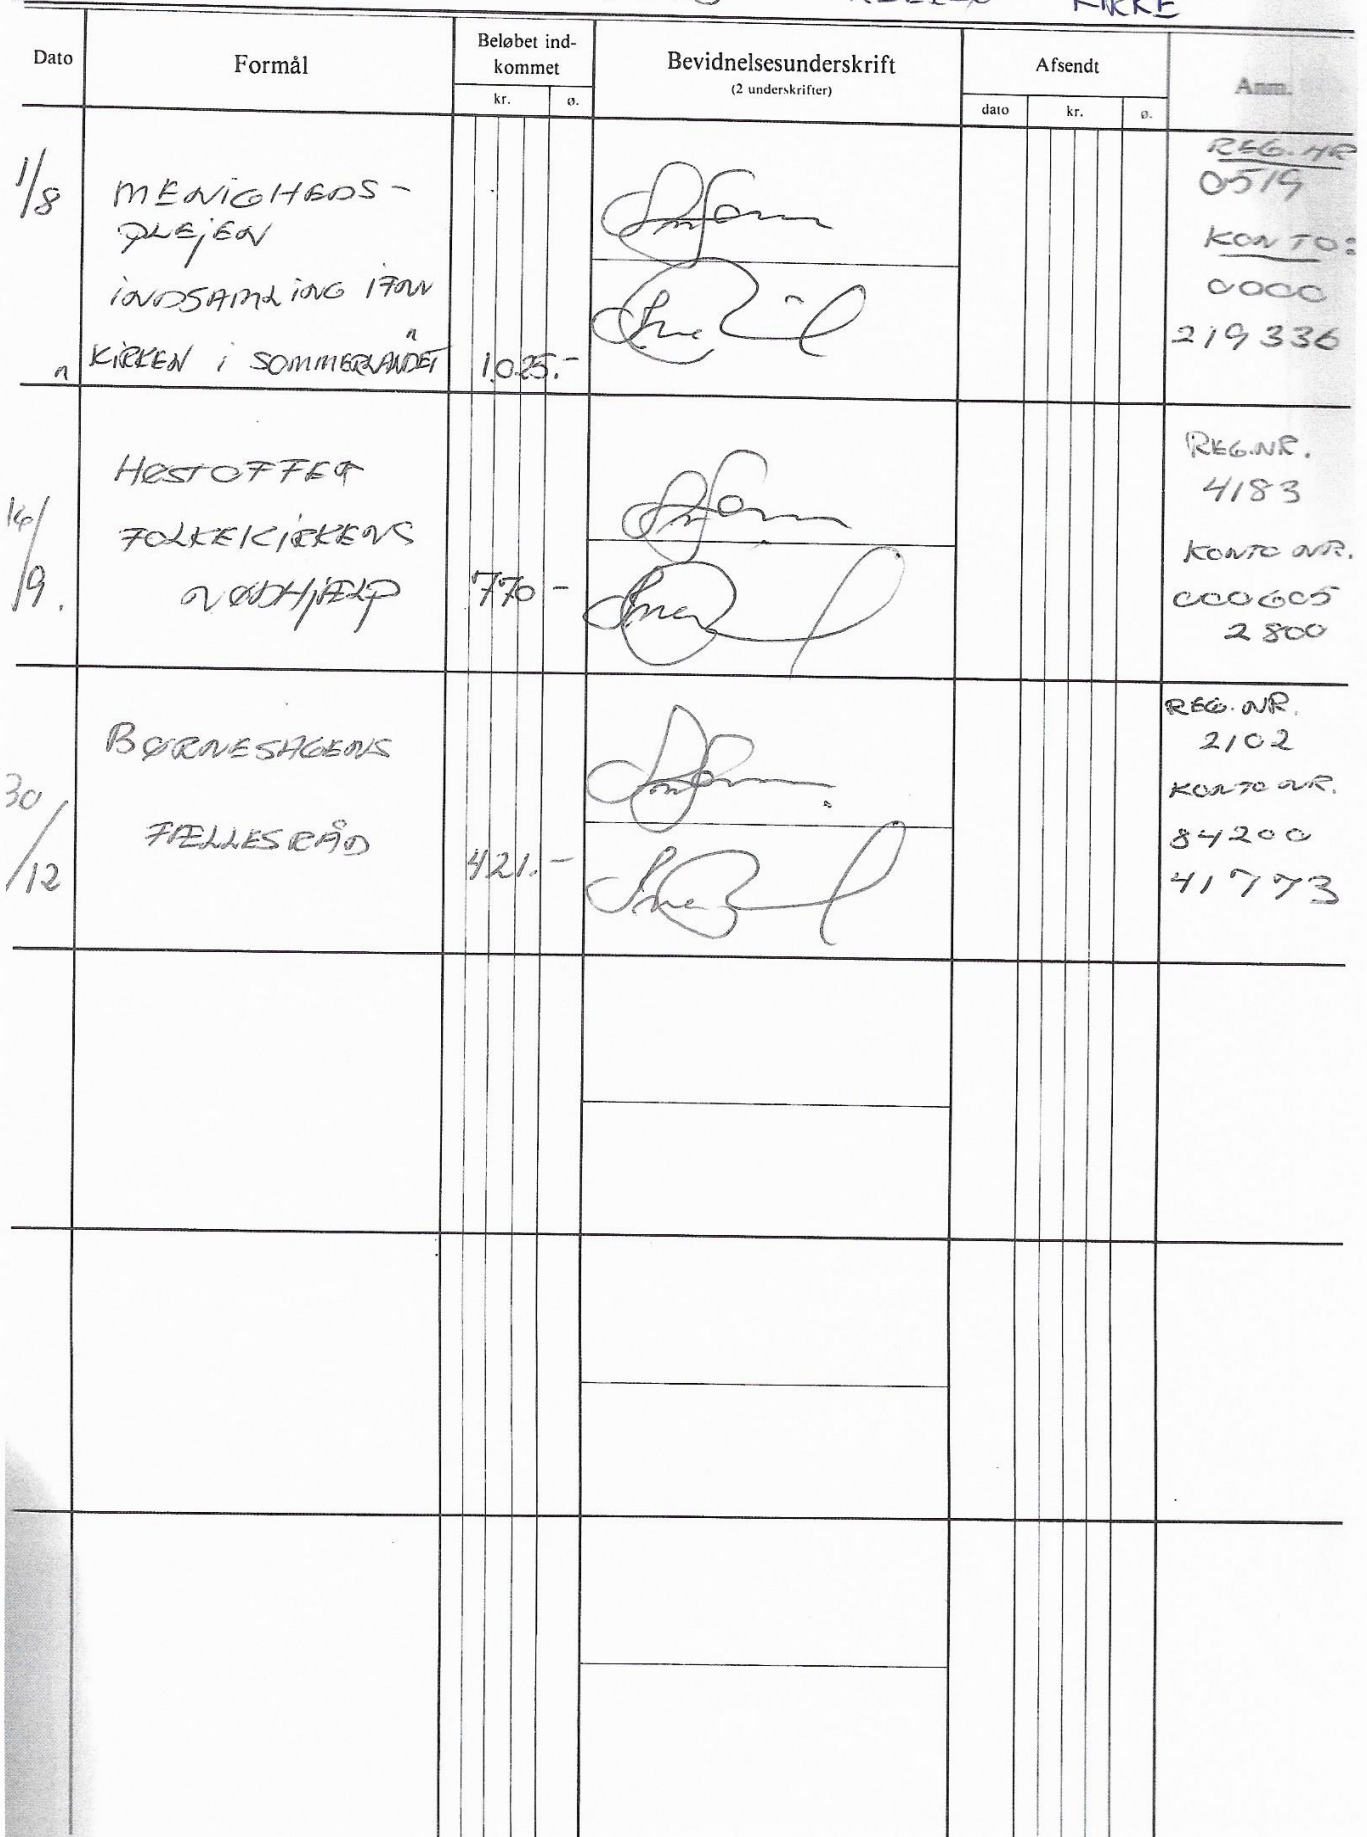 KIRKE
Dato
Formål
Beløbet ind-
kommet
kr.
ø.
Bevidnelsesunderskrift
(2 underskrifter)
Afsendt
dato
kr.
ø.
Anm.
1/8
MENIGHEDS-
PLEJEN
INDSAMLING IFM
"KIRKEN i SOMMERLANDET"
1.025.-
REG.NR
0519
KONTO:
0000
219336
16/9.
HØSTOFFER
FOLKEKIRKENS
NØDHJÆLP
770-
REG.NR.
4183
KONTO NR.
000605
2800
30/12
BØRNESAGENS
FÆLLESRÅD
421.-
REG.NR.
2102
KONTO NR.
84200
41773